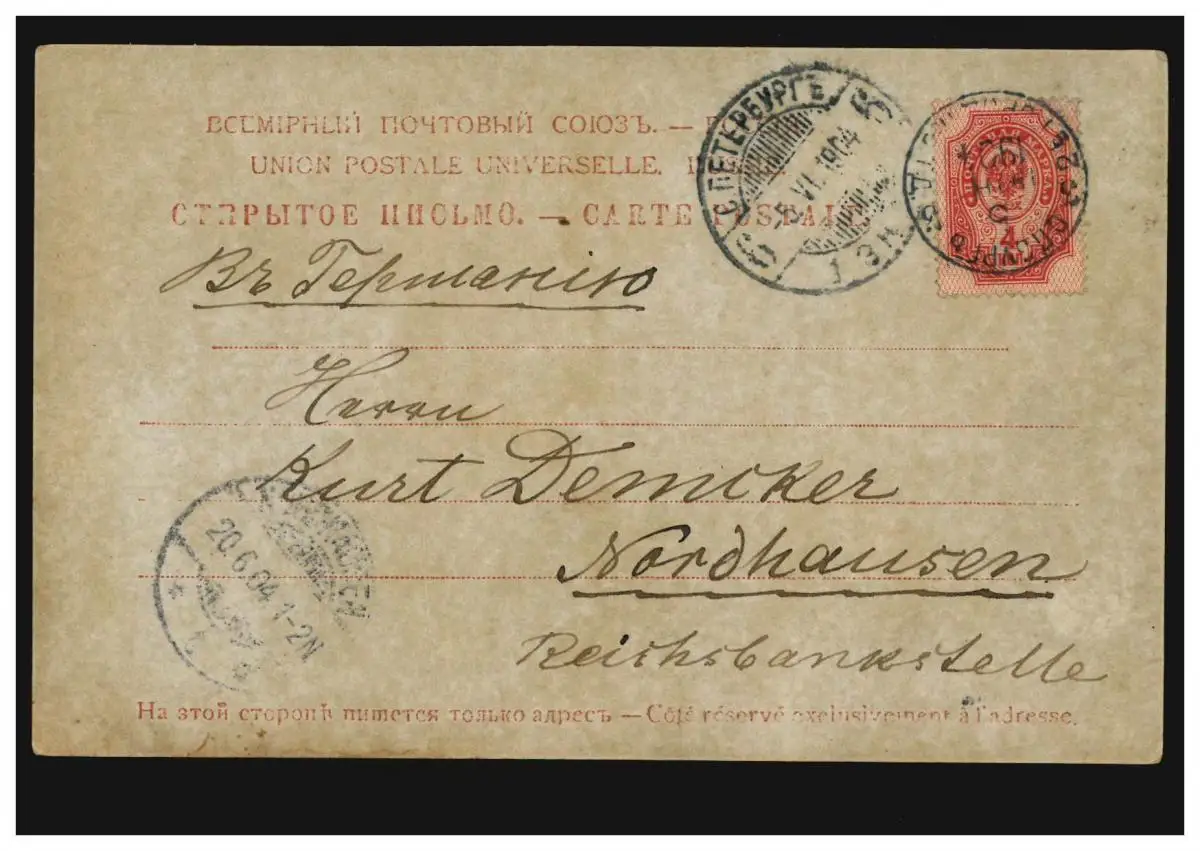 ВСЕМІРНЫЙ ПОЧТОВЫЙ СОЮЗЪ. —
UNION POSTALE UNIVERSELLE.
ОТКРЫТОЕ ПИСЬМО. — CARTE POSTALE
С.ПЕТЕРБУРГЪ
-5 VI 1904
ПОЧТОВАЯ МАРКА
4
Въ Германію
Herrn
Kurt Demcker
Nordhausen
Reichsbankstelle
NORDHAUSEN
20.6.04. 1-2N
На этой сторонѣ пишется только адресъ — Côté réservé exclusivement à l'adresse.